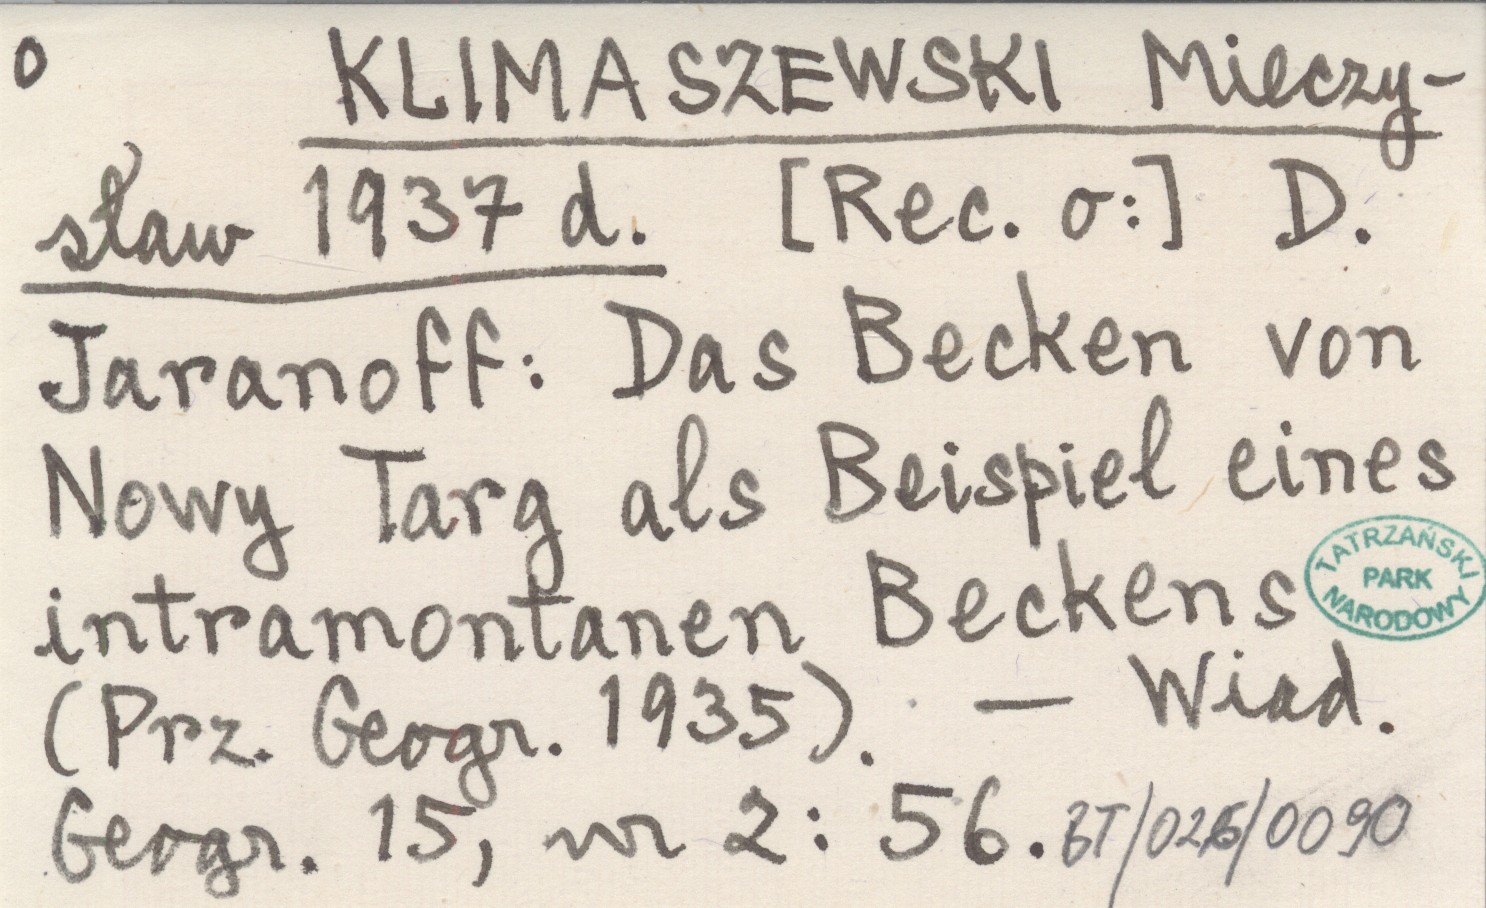 0 KLIMASZEWSKI Mieczy-
sław 1937 d. [Rec. o:] D.
Jaranoff: Das Becken von
Nowy Targ als Beispiel eines
intramontanen Beckens
TATRZAŃSKI
PARK
NARODOWY
(Prz. Geogr. 1935). — Wiad.
Geogr. 15, nr 2: 56. BT/026/0090